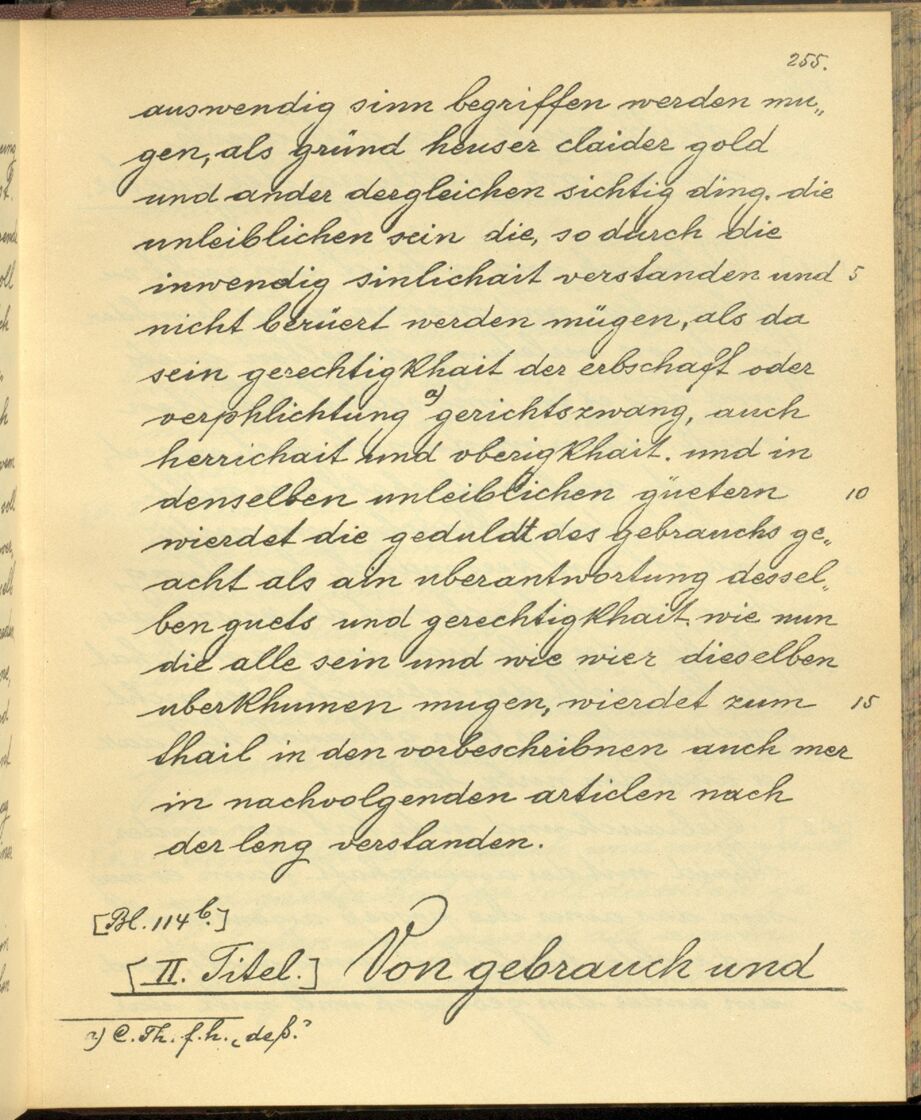 255.
auswendig sinn begriffen werden mu„
gen, als gründ heuser claider gold
und ander dergleichen sichtig ding. die
unleiblichen sein die, so durch die
inwendig sinlichait verstanden und 5
nicht berüert werden mügen, als da
sein gerechtigkhait der erbschaft oder
verphlichtung a) gerichtszwang, auch
herrichait und oberigkhait. und in
denselben unleiblichen güetern 10
wierdet die geduldt des gebrauchs ge„
acht als ain uberantwortung dessel„
ben guets und gerechtigkhait. wie nun
die alle sein und wie wier dieselben
uberkhumen mugen, wierdet zum 15
thail in den vorbeschribnen auch mer
in nachvolgenden articlen nach
der leng verstanden.
[Bl. 114b.]
[II. Titel.] Von gebrauch und
a) C. Th. f. h. „deß."